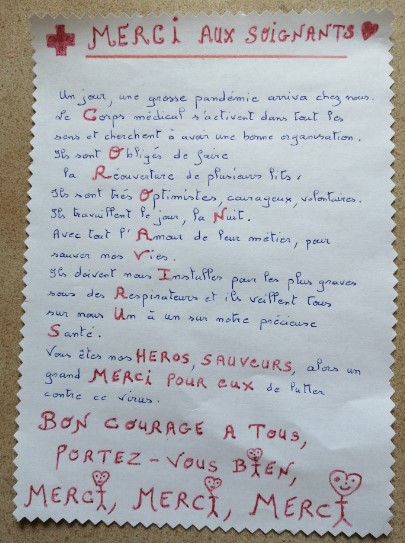 MERCI AUX SOIGNANTS
Un jour, une grosse pandémie arriva chez nous.
Le Corps médical s'activent dans tout les
sens et cherchent à avoir une bonne organisation.
Ils sont Obligés de faire
la Réouverture de plusieurs lits,
Ils sont très Optimistes, courageux, volontaires.
Ils travaillent le jour, la Nuit.
Avec tout l'Amour de leur métier, pour
sauver nos Vies.
Ils doivent nous Installer pour les plus graves
sous des Respirateurs et ils veillent tous
sur nous Un à un sur notre précieuse
Santé.
Vous êtes nos HEROS, SAUVEURS, alors un
grand MERCI POUR EUX de lutter
contre ce virus.
BON COURAGE A TOUS,
PORTEZ-VOUS BIEN,
MERCI, MERCI, MERCI